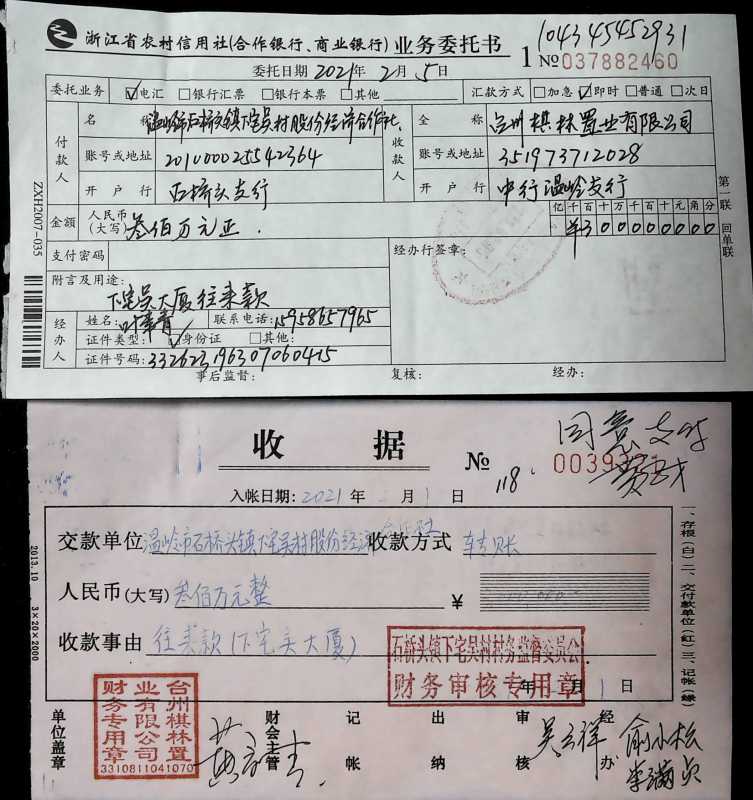 浙江省农村信用社(合作银行、商业银行)业务委托书
104345452931
1 №037882460
委托日期2021年2月5日
委托业务 ☑电汇 □银行汇票 □银行本票 □其他 汇款方式 □加急 ☑即时 □普通 □次日
付款人 名称 温岭市石桥头镇下宅吴村股份经济合作社 收款人 全称 台州棋林置业有限公司
账号或地址 201000025542364 账号或地址 351973712028
开户行 石桥头支行 开户行 中行温岭支行
金额 人民币(大写) 叁佰万元正. 亿千百十万千百十元角分
¥300000000
支付密码 经办行签章:
附言及用途:
下宅吴大厦往来款
经办人 姓名: 联系电话:15958657965
证件类型: ☑身份证 □其他:
证件号码:332623196307060415
事后监督: 复核: 经办:
ZXH2007-035
第一联 回单联
收据
№ 118
同意支付
入帐日期:2021年 月1日
交款单位 温岭市石桥头镇下宅吴村股份经济合作社 收款方式 转账
人民币(大写) 叁佰万元整 ¥
收款事由 往来款(下宅吴大厦)
石桥头镇下宅吴村村务监督委员会
财务审核专用章
年 月1日
台州棋林置业有限公司财务专用章
3310811041070
单位盖章 财会主管 记帐 出纳 审核 经办
吴云祥 俞小松
李满贞
2013.10 3×20×2000
一、存根(白)二、交付款单位(红)三、记帐(绿)